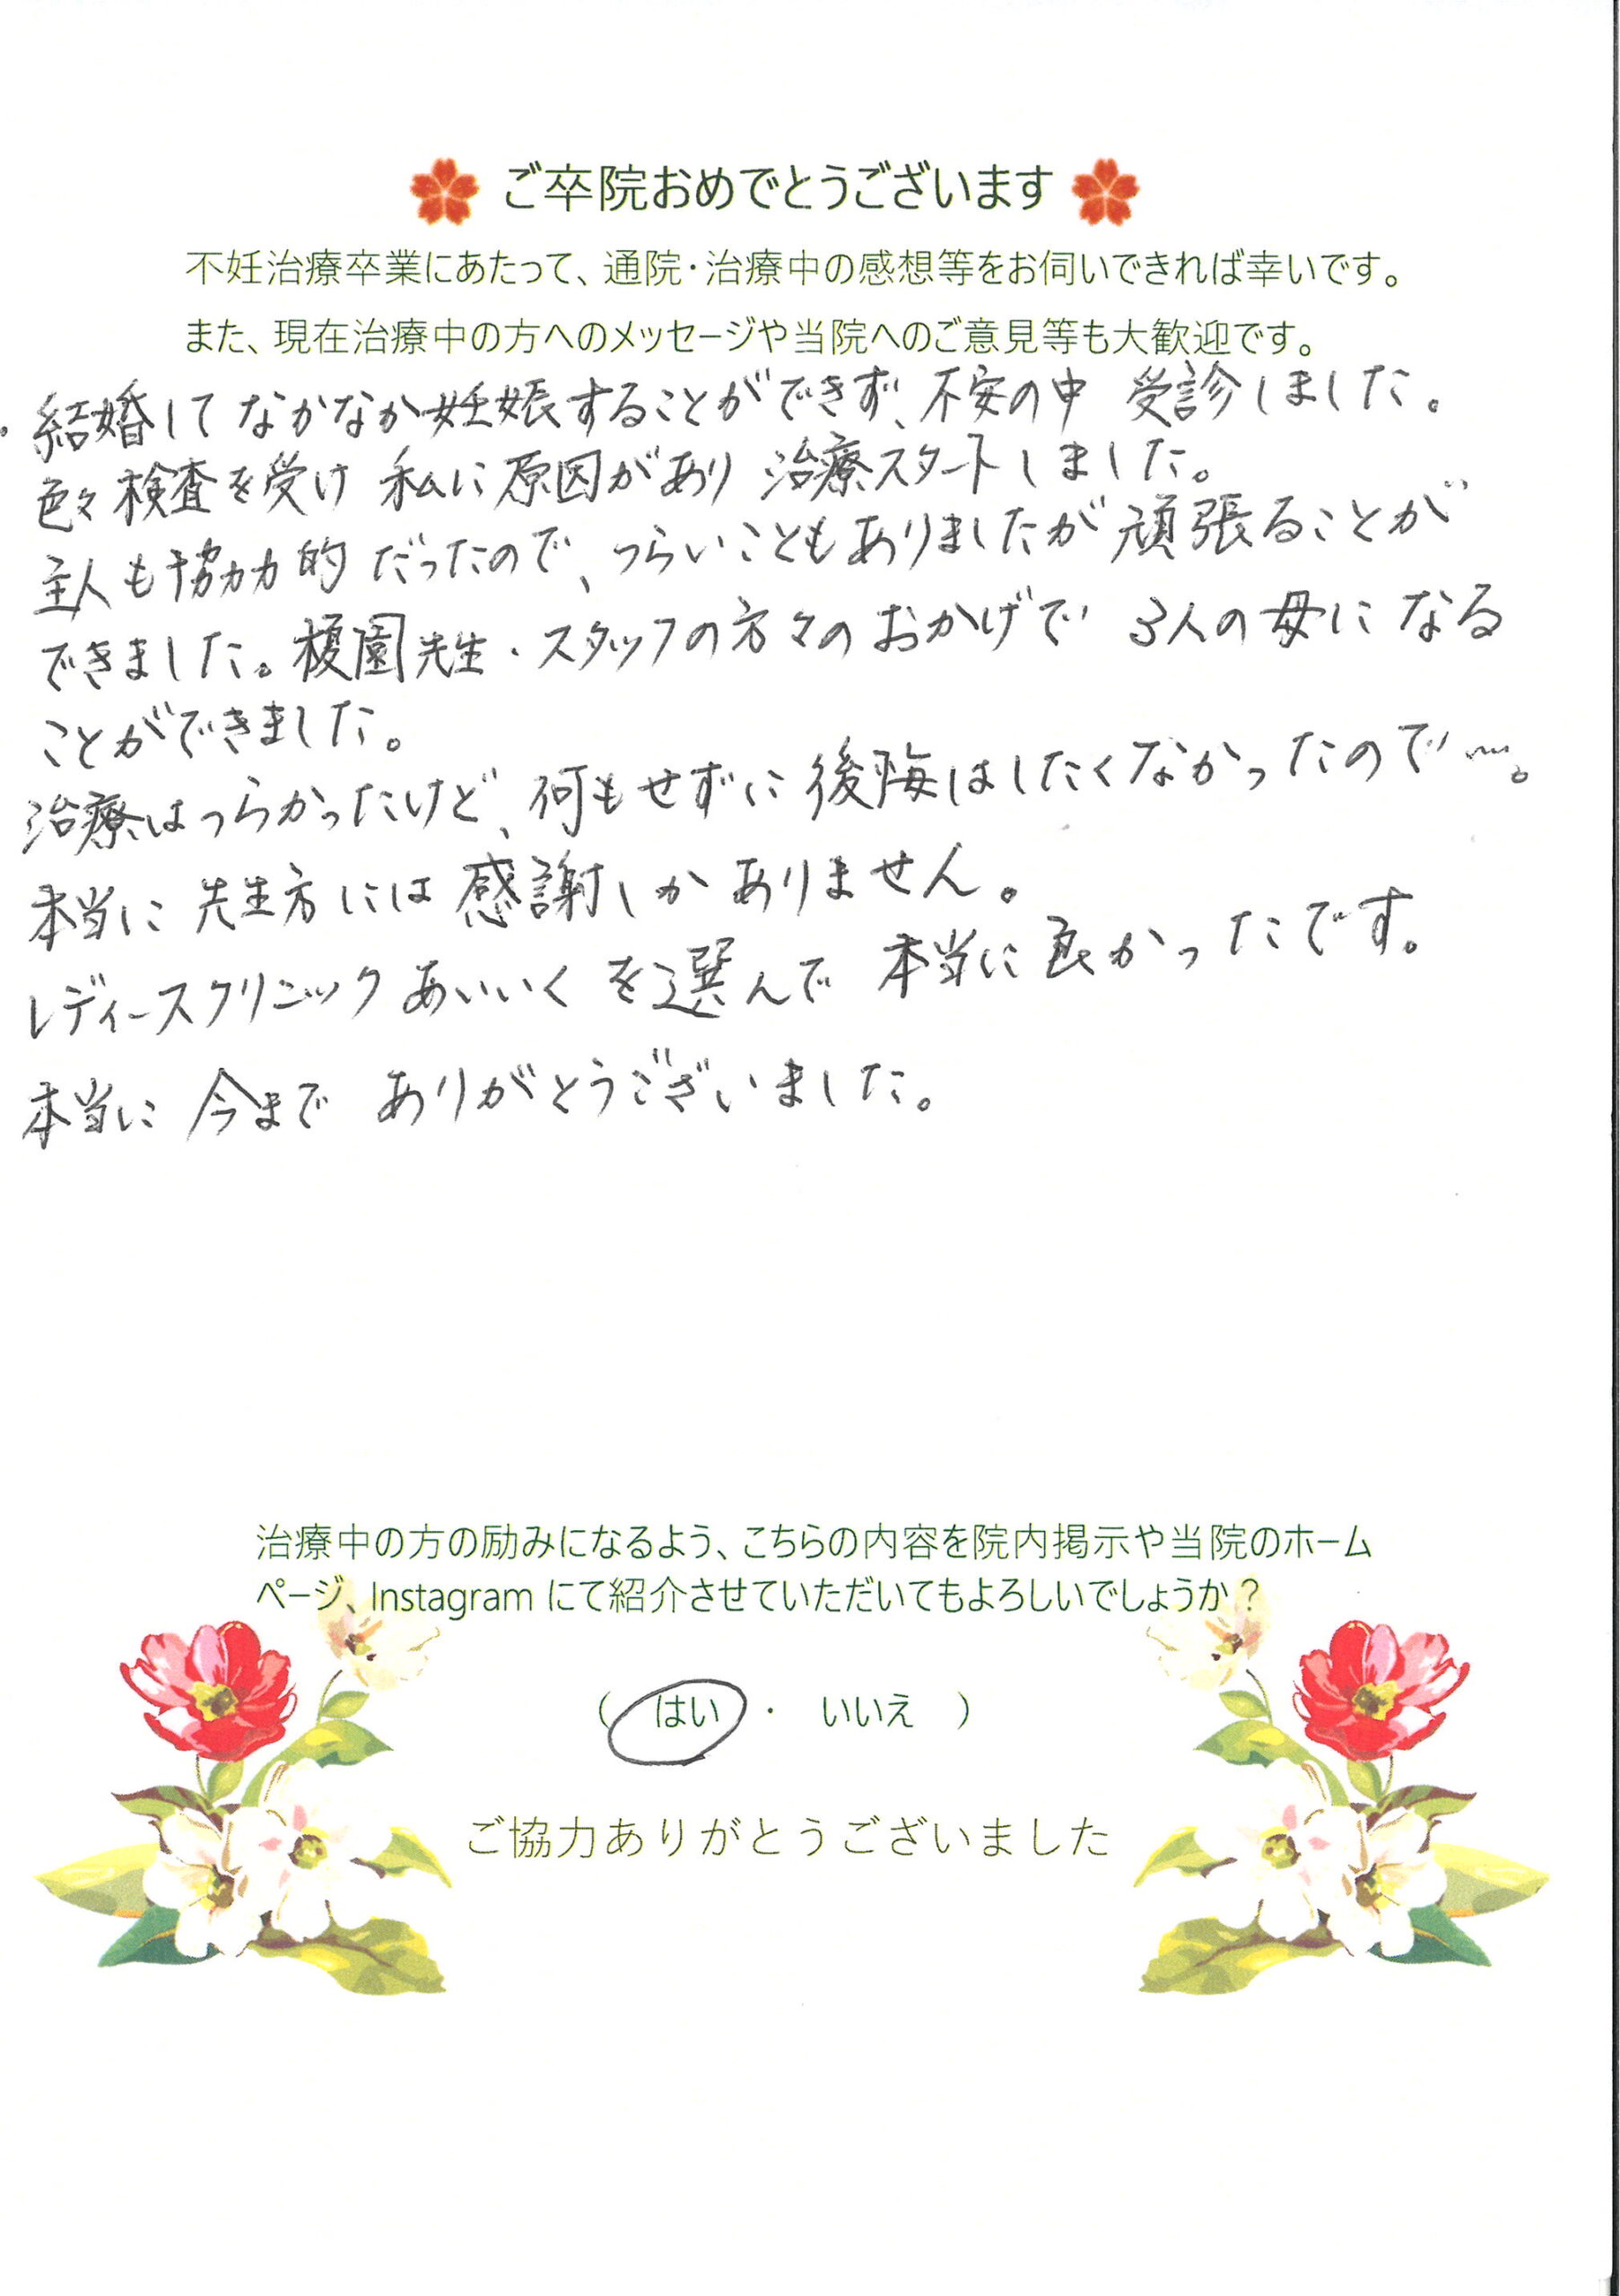 ご卒院おめでとうございます
不妊治療卒業にあたって、通院・治療中の感想等をお伺いできれば幸いです。
また、現在治療中の方へのメッセージや当院へのご意見等も大歓迎です。
・結婚して なかなか妊娠することができず、不安の中 受診しました。
色々検査を受け 私に原因があり 治療スタートしました。
主人も協力的だったので、つらいこともありましたが 頑張ることが
できました。榎園先生・スタッフの方々のおかげで 3人の母になる
ことができました。
治療はつらかったけど、何もせずに後悔はしたくなかったので…。
本当に 先生方には感謝しかありません。
レディースクリニックあいいくを選んで 本当に良かったです。
本当に 今まで ありがとうございました。
治療中の方の励みになるよう、こちらの内容を院内掲示や当院のホーム
ページ、Instagram にて紹介させていただいてもよろしいでしょうか？
（ はい ・ いいえ ）
ご協力ありがとうございました